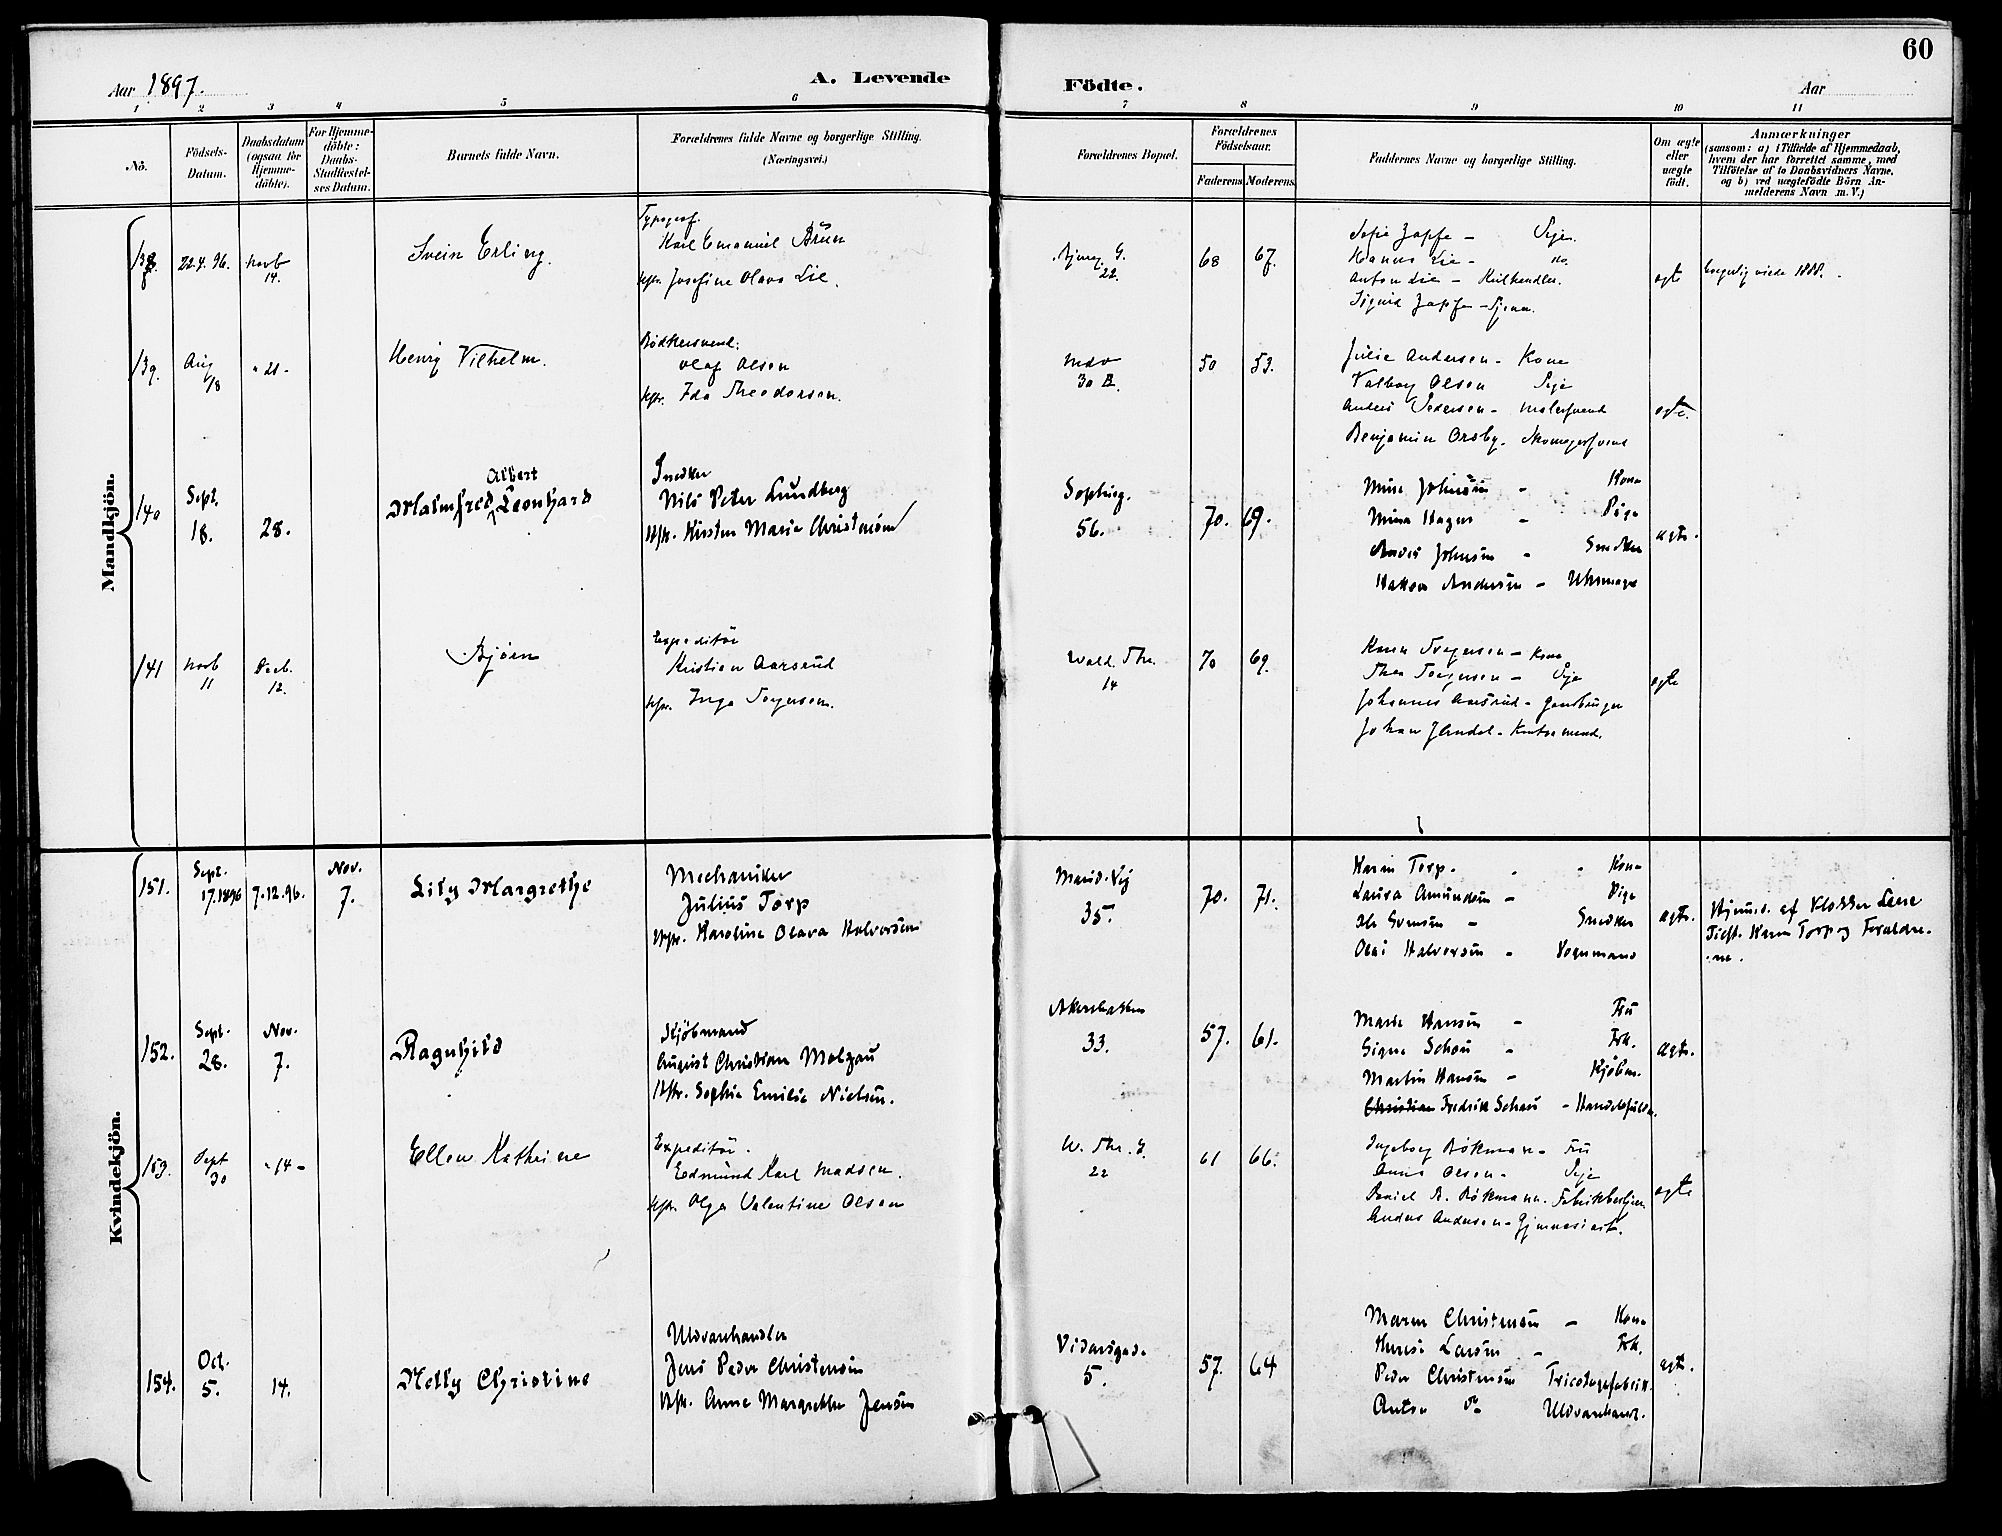 60
Aar 1897.
A. Levende
Födte.
Aar
1 2 3 4 5 6 7 8 9 10 11
No.
Födsels-Datum.
Daabsdatum (ogsaa for Hjemme-döbte).
For Hjemme-döbte: Daabs-Stadfæstel-ses Datum.
Barnets fulde Navn.
Forældrenes fulde Navne og borgerlige Stilling.
(Næringsvei.)
Forældrenes Bopæl.
Forældrenes Födselsaar.
Faderens
Moderens
Faddernes Navne og borgerlige Stilling.
Om ægte eller uægte födt.
Anmærkninger
(saasom: a) i Tilfælde af Hjemmedaab, hvem der har forrettet samme, med Tilföielse af to Daabsvidners Navne, og b) ved uægtefödte Börn An-melderens Navn m. V.)
Mandkjön.
138 22.4.96. Novb 14. Svein Erling.
Typograf.
Karl Emanuel Brun
Hstr. Josefine Olava Lie.
22. 68 67.
Sofie Zapfe - Pige.
Hanna Lie - do.
Anton Lie - Kulhandler.
Sigurd Zapfe -
ægte borgerlig viede 1888.
139. Aug 18 " 21 - Henry Vilhelm.
Bödkersvend.
Olaf Olsen
Hstr. Ida Theodorsen.
30 B. 50 53.
Julie Andersen - Kone
Valborg Olsen Pige
Anders Pedersen - Malersvend
Benjamin Orsby. Skomagersvend
ægte.
140 Sept. 18. 28. Malmfred Albert Leonhard
Snedker
Nils Peter Lundberg
Hstr. Kirsten Marie Christensen
Sophieg. 56. 70. 69.
Mina Johnsen - Kone
Mina Hagen - Pige
Anders Johnsen - Snedker
Haakon Andersen - Uhrmager
ægte.
141 Novb 11 Decb. 12. Bjørn
Expeditør
Kristian Aarsrud
Hstr. Inga Torgersen.
Wald. Thr. 14 70 69.
Karen Torgersen - Kone
Thea Torgersen - Pige
Johannes Aarsrud - Gaardbruger
Johan Handel - Kontormand.
ægte
Kvindekjön.
151. Sept. 17.1896 7.12.96. Nov. 7. Lily Margrethe
Mechaniker
Julius Torp
Hstr. Karoline Olava Halvorsen
Marid. Vej 35. 70. 71.
Karen Torp - Kone
Laura Amundsen - Pige
Ole Svensen - Snedker
Olai Halvorsen - Vognmand
ægte. Hjemmed. af Klokker Lasse
Test. Karen Torp og Forældre-
ne.
152. Sept. 28. Nov. 7. Ragnhild
Kjöbmand
August Christian Molzau
Hstr. Sophie Emilie Nielsen.
Akersbakken 33. 57. 61.
Marie Hansen - Fru
Signe Schou - Frk.
Martin Hansen - Kjöbm.
Christian Fredrik Schou - Handelsfuldm.
ægte.
153. Sept 30 " 14 - Ellen Kathrine
Expeditør.
Edmund Karl Madsen.
Hstr. Olga Valentine Olsen
W. Thr. G. 22 61 66.
Ingeborg Bökman - Fru
Anna Olsen - Pige
Daniel B. Bökmann. Fabrikbestyrer
Anders Andersen - Gymnasiast.
ægte
154. Oct. 5. 14. Nelly Christine
Uldvarehandler
Jens Peder Christensen
Hstr. Anne Margrethe Jensen
Vidarsgade 5. 57. 64
Maren Christensen - Kone
Larsen - Frk.
Peder Christensen Tricotagefabrik.
Anton do Uldvarehandl.
ægte.